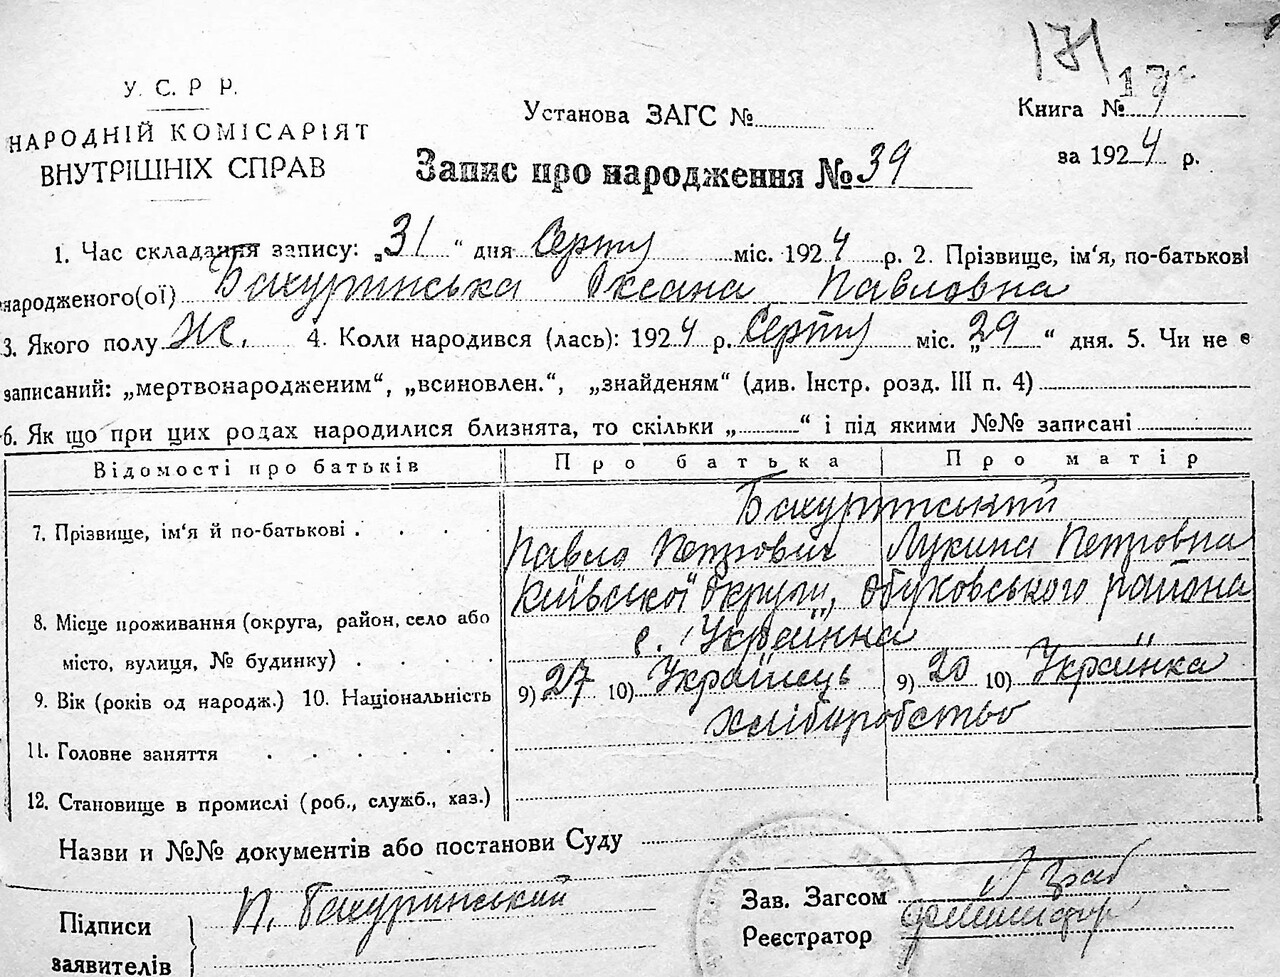 171
171
У. С. Р Р.
НАРОДНІЙ КОМІСАРІЯТ
ВНУТРІШНІХ СПРАВ
Установа ЗАГС №
Книга №
за 1924 р.
Запис про народження № 39
1. Час складання запису: „31“ дня Серпня міс. 1924 р. 2. Прізвище, ім'я, по-батькові
народженого(ої) Бахуринська Оксана Павловна
3. Якого полу Ж. 4. Коли народився (лась): 1924 р. Серпня міс. „29“ дня. 5. Чи не є
записаний: „мертвонародженим“, „всиновлен.“, „знайденям“ (див. Інстр. розд. III п. 4)
6. Як що при цих родах народилися близнята, то скільки „ “ і під якими №№ записані
Відомості про батьків Про батька Про матір
Бахуринський
7. Прізвище, ім'я й по-батькові Павло Петрович Лукина Петровна
Київської округи, Обуховського района
8. Місце проживання (округа, район, село або
с. Українка
місто, вулиця, № будинку)
9. Вік (років од народж.) 10. Національність 9) 27 10) Українець 9) 20 10) Українка
хліборобство
11. Головне заняття
12. Становище в промислі (роб., служб., хаз.)
Назви и №№ документів або постанови Суду
Підписи
заявителів
П. Бахуринський
Зав. Загсом
Реєстратор